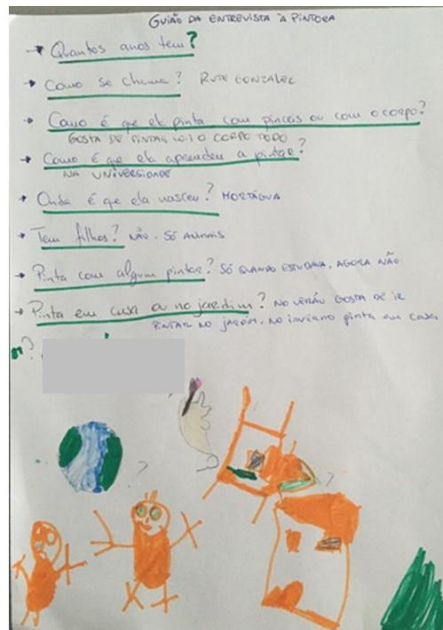 GUIÃO DA ENTREVISTA À PINTORA
→ Quantos anos tem?
→ Como se chama? RUTE GONZALEZ
→ Como é que ela pinta com pinceis ou com o corpo?
GOSTA DE PINTAR C/ O CORPO TODO
→ Como é que ela aprendeu a pintar?
NA UNIVERSIDADE
→ Onde é que ela nasceu? MORTÁGUA
→ Tem filhos? NÃO. SÓ ANIMAIS
→ Pinta com algum pintor? SÓ QUANDO ESTUDAVA, AGORA NÃO
→ Pinta em casa ou no jardim? NO VERÃO GOSTA DE IR
PINTAR NO JARDIM. NO INVERNO PINTA EM CASA
?
? ?
?